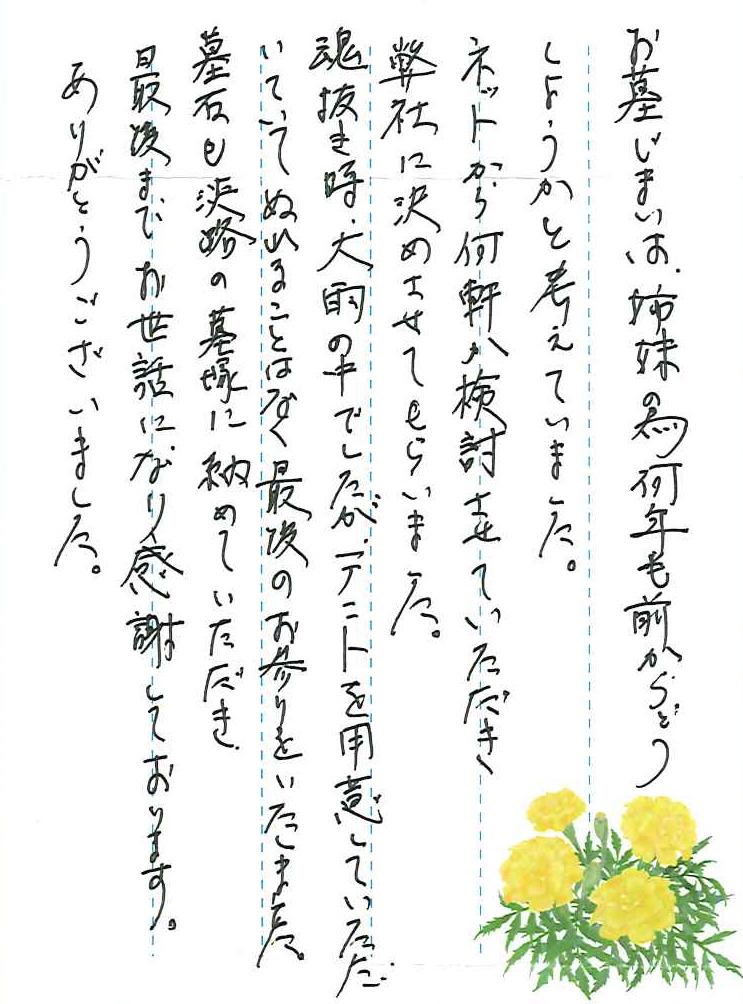 お墓じまいは、姉妹の為何年も前からどう
しようかと考えていました。
ネットから何軒か検討させていただき
弊社に決めさせてもらいました。
魂抜き時、大雨の中でしたが、テントを用意していただ
いていてぬれることはなく最後のお参りをいたしました。
墓石も淡路の墓塚に納めていただき、
最後までお世話になり感謝しております。
ありがとうございました。